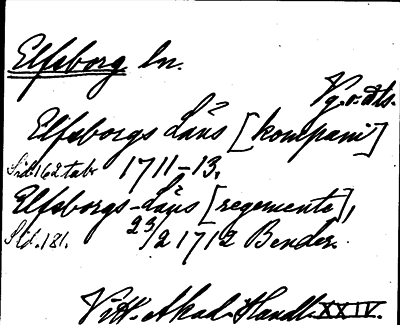 Elfsborg ln.
Vg. o. Dls.
Elfsborgs Läns [kompani]
Sid. 162 tab 1711-13.
Elfsborgs-Läns [regemente],
Sid. 181. 23/2 1712 Bender.
Vitt. Akad. Handl. XXIV.